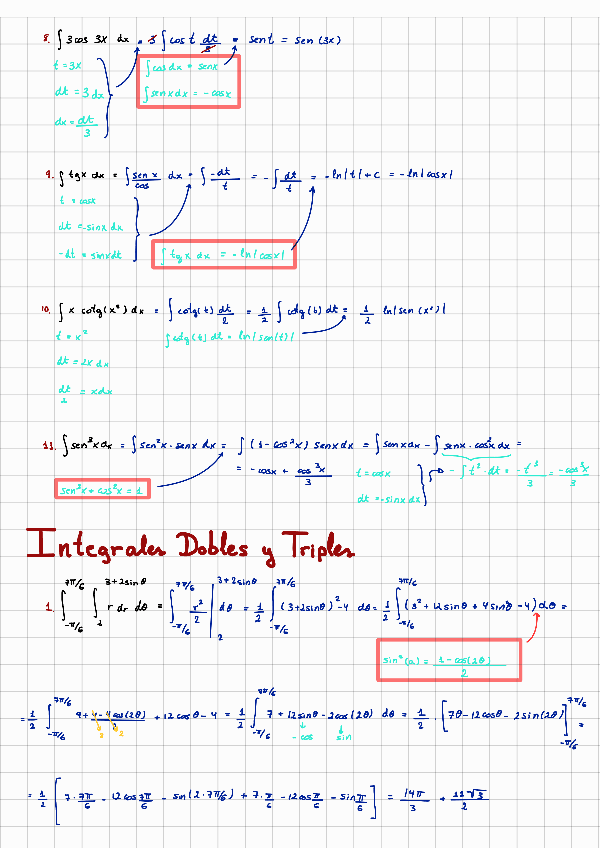 8. ∫ 3 cos 3x dx = 3 ∫ cos t dt/3 = sen t = sen (3x)
t = 3x
∫ cos dx = sen x
dt = 3 dx
∫ sen x dx = - cos x
dx = dt/3
9. ∫ tg x dx = ∫ sen x/cos dx = ∫ -dt/t = -∫ dt/t = -ln|t| + c = -ln|cos x|
t = cos x
dt = -sin x dx
-dt = sin x dt
∫ tg x dx = -ln|cos x|
10. ∫ x cotg (x²) dx = ∫ cotg (t) dt/2 = 1/2 ∫ cotg (t) dt = 1/2 ln|sen (x²)|
t = x²
∫ cotg (t) dt = ln|sen(t)|
dt = 2x dx
dt/2 = x dx
11. ∫ sen³x dx = ∫ sen²x · sen x dx = ∫ (1 - cos²x) sen x dx = ∫ sen x dx - ∫ sen x · cos²x dx =
= - cos x + cos³x/3
t = cos x
- ∫ t² · dt = -t³/3 = -cos³x/3
sen²x + cos²x = 1
dt = -sin x dx
Integrales Dobles y Triples
1. ∫_{-π/6}^{7π/6} ∫_{2}^{3+2sin θ} r dr dθ = ∫_{-π/6}^{7π/6} r²/2 |_{2}^{3+2sin θ} dθ = 1/2 ∫_{-π/6}^{7π/6} (3+2sin θ)² - 4 dθ = 1/2 ∫_{-π/6}^{7π/6} (3² + 12 sin θ + 4 sin²θ - 4) dθ =
sin²(a) = 1 - cos(2θ)/2
= 1/2 ∫_{-π/6}^{7π/6} 9 + 4 - 4 cos(2θ)/2 + 12 cos θ - 4 = 1/2 ∫_{-π/6}^{7π/6} 7 + 12 sin θ - 2 cos (2θ) dθ = 1/2 · [7θ - 12 cos θ - 2 sin (2θ)]_{-π/6}^{7π/6} =
2 2
- cos sin
= 1/2 [7 · 7π/6 - 12 cos 7π/6 - sin (2 · 7π/6) + 7 · π/6 - 12 cos π/6 - sin π/6] = 14π/3 + 11√3/2